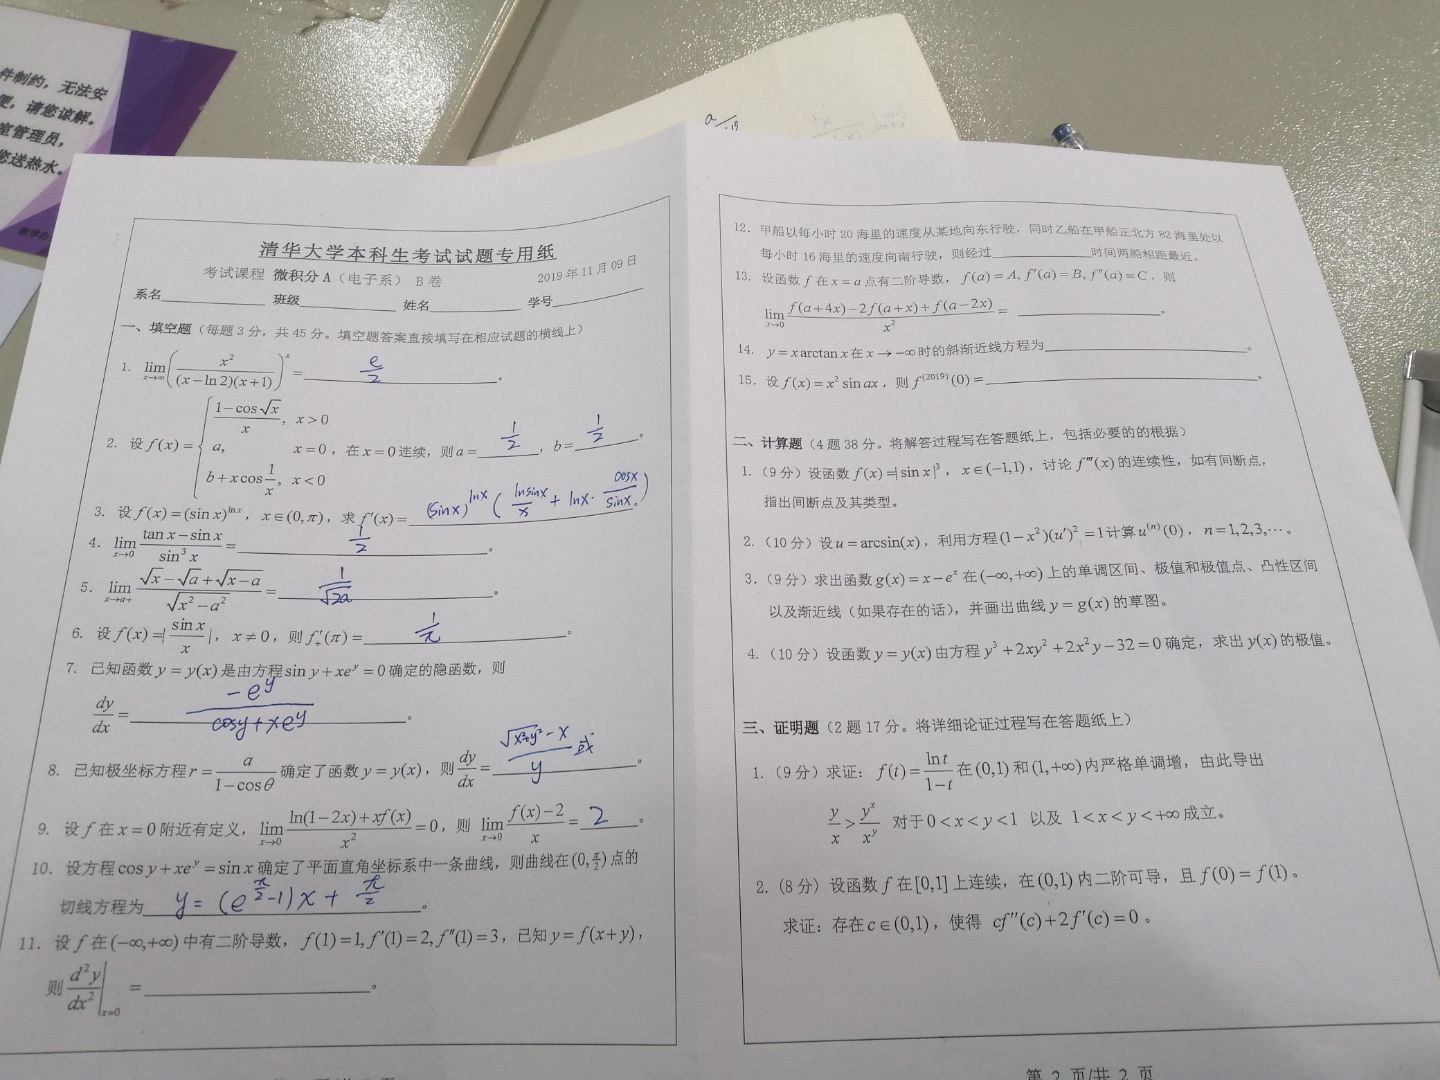 件制约，无法安
便，请您谅解。
室管理员，
您送热水。
清华大学本科生考试试题专用纸
考试课程 微积分A（电子系） B卷 2019年11月09日
系名 班级 姓名 学号
一、填空题（每题3分，共45分。填空题答案直接填写在相应试题的横线上）
1. lim_{x→∞}(x²/((x−ln2)(x+1)))^x = e/2 。
2. 设 f(x)={ (1−cos√x)/x, x>0
a, x=0，在x=0连续，则a= 1/2 ，b= 1/2 。
b+xcos(1/x), x<0
3. 设 f(x)=(sin x)^{ln x}，x∈(0,π)，求 f′(x)= (sinx)^{lnx} (lnsinx/x + lnx·cosx/sinx) 。
4. lim_{x→0} (tan x−sin x)/sin³x = 1/2 。
5. lim_{x→a+} (√x−√a+√(x−a))/√(x²−a²) = 1/√2a 。
6. 设 f(x)=|sin x/x|，x≠0，则 f₊′(π)= 1/π 。
7. 已知函数 y=y(x) 是由方程 sin y+xe^y=0 确定的隐函数，则
dy/dx = −e^y/(cosy+xe^y) 。
8. 已知极坐标方程 r=a/(1−cosθ) 确定了函数 y=y(x)，则 dy/dx = (√(x²+y²)−x)/y 或 。
9. 设 f 在 x=0 附近有定义，lim_{x→0} (ln(1−2x)+xf(x))/x² =0，则 lim_{x→0} (f(x)−2)/x = 2 。
10. 设方程 cos y+xe^y=sin x 确定了平面直角坐标系中一条曲线，则曲线在(0,π/2)点的
切线方程为 y=(e^{π/2}−1)x+π/2 。
11. 设 f 在(−∞,+∞)中有二阶导数，f(1)=1, f′(1)=2, f″(1)=3，已知 y=f(x+y)，
则 d²y/dx²|_{x=0} = 。
12. 甲船以每小时20海里的速度从某地向东行驶，同时乙船在甲船正北方82海里处以
每小时16海里的速度向南行驶，则经过 时间两船相距最近。
13. 设函数 f 在 x=a 点有二阶导数，f(a)=A, f′(a)=B, f″(a)=C，则
lim_{x→0} (f(a+4x)−2f(a+x)+f(a−2x))/x² = 。
14. y=x arctan x 在 x→−∞ 时的斜渐近线方程为 。
15. 设 f(x)=x² sin ax，则 f^{(2019)}(0)= 。
二、计算题（4题38分。将解答过程写在答题纸上，包括必要的的根据）
1.（9分）设函数 f(x)=|sin x|³，x∈(−1,1)，讨论 f‴(x) 的连续性，如有间断点，
指出间断点及其类型。
2.（10分）设u=arcsin(x)，利用方程(1−x²)(u′)²=1计算u^{(n)}(0)，n=1,2,3,⋯。
3.（9分）求出函数 g(x)=x−e^x 在(−∞,+∞)上的单调区间、极值和极值点、凸性区间
以及渐近线（如果存在的话），并画出曲线 y=g(x) 的草图。
4.（10分）设函数 y=y(x) 由方程 y³+2xy²+2x²y−32=0 确定，求出 y(x) 的极值。
三、证明题（2题17分。将详细论证过程写在答题纸上）
1.（9分）求证：f(t)=ln t/(1−t) 在(0,1)和(1,+∞)内严格单调增，由此导出
y/x > y^x/x^y 对于0<x<y<1 以及 1<x<y<+∞成立。
2.（8分）设函数 f 在[0,1]上连续，在(0,1)内二阶可导，且 f(0)=f(1)。
求证：存在c∈(0,1)，使得 cf″(c)+2f′(c)=0。
第 2 页/共 2 页